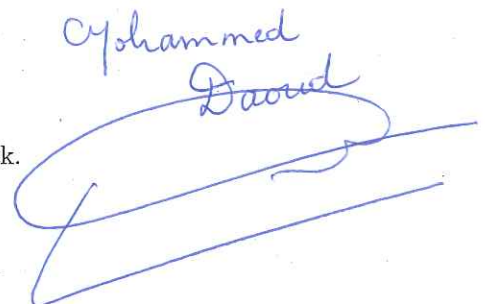 Mohammed
Daoud
k.